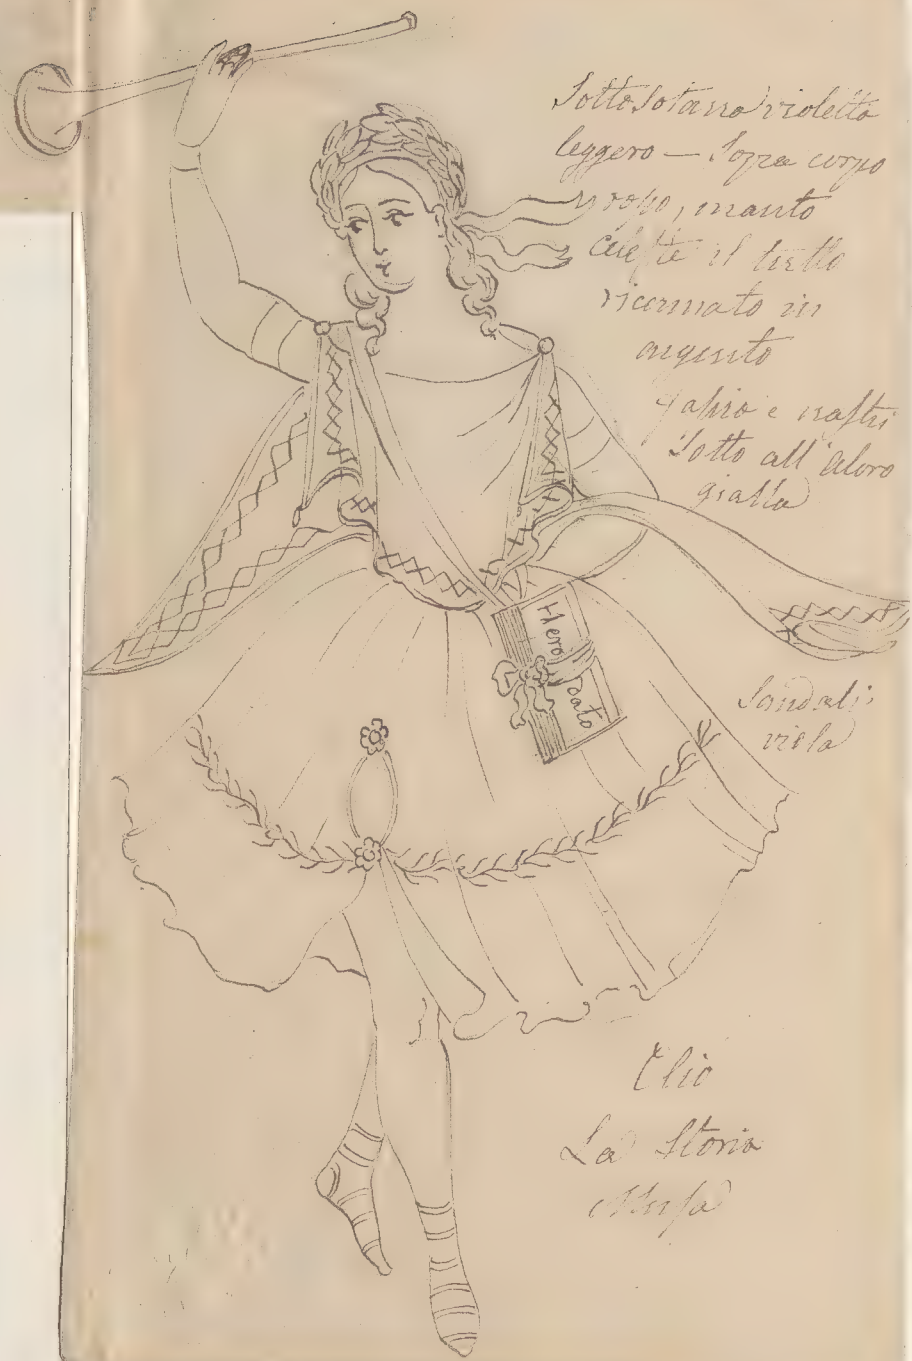 Sotto Sotana violetta
leggero — Sopra corpo
rosso, manto
celeste il tutto
ricamato in
argento
e nastri
Sotto all'aloro
gialla
Hero
doato
Sandali
viola
Clio
La Storia
Musa